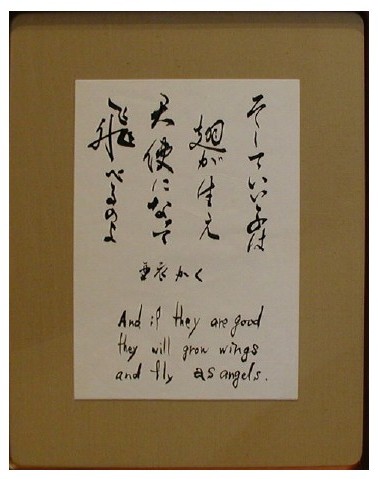 そしていい子は
翅が生え
天使になって
飛べるのよ
かく
And if they are good
they will grow wings
and fly as angels.